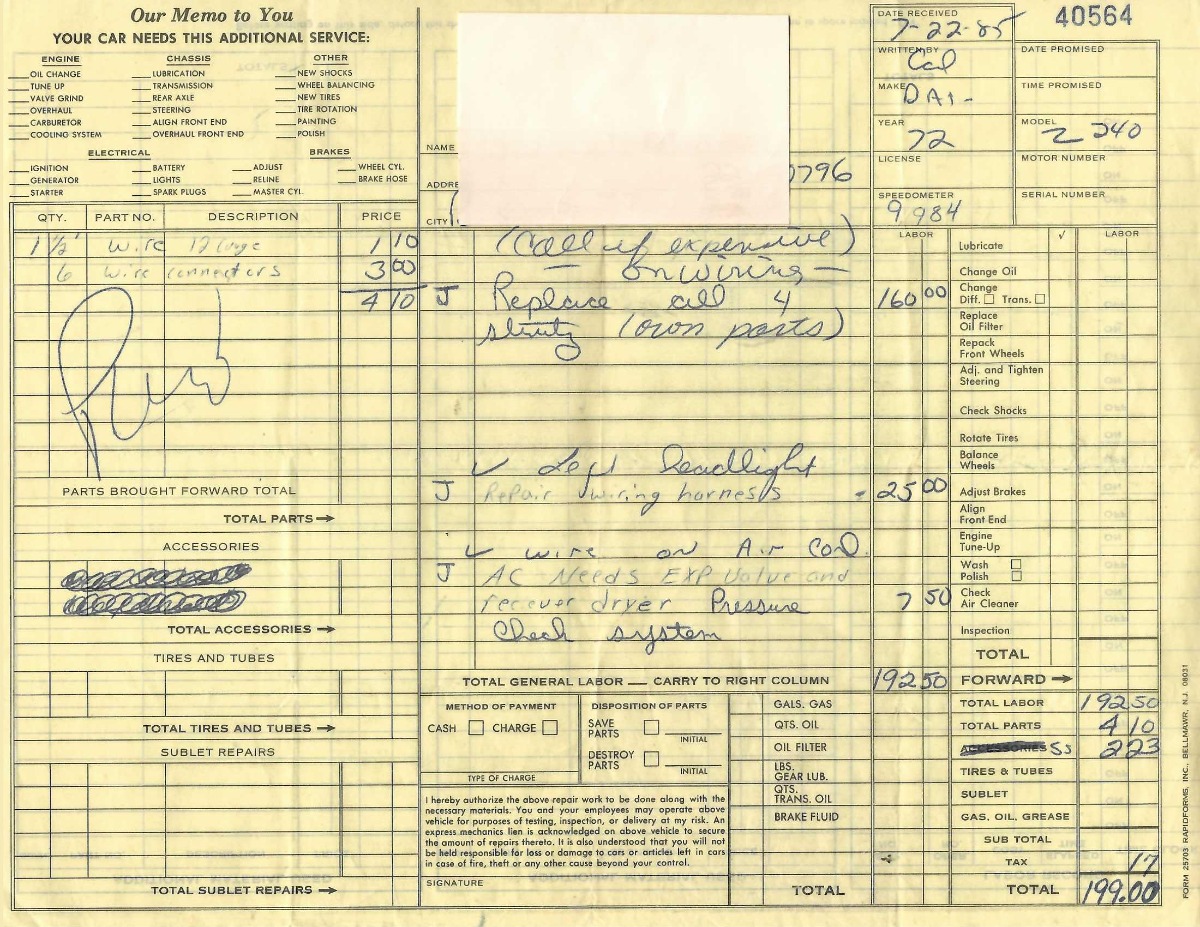 Our Memo to You
YOUR CAR NEEDS THIS ADDITIONAL SERVICE:
ENGINE CHASSIS OTHER
OIL CHANGE LUBRICATION NEW SHOCKS
TUNE UP TRANSMISSION WHEEL BALANCING
VALVE GRIND REAR AXLE NEW TIRES
OVERHAUL STEERING TIRE ROTATION
CARBURETOR ALIGN FRONT END PAINTING
COOLING SYSTEM OVERHAUL FRONT END POLISH
ELECTRICAL BRAKES
IGNITION BATTERY ADJUST WHEEL CYL.
GENERATOR LIGHTS RELINE BRAKE HOSE
STARTER SPARK PLUGS MASTER CYL.
NAME
ADDRE
CITY
0796
DATE RECEIVED 7-22-85
40564
WRITTEN BY Cal
DATE PROMISED
MAKE DAT-
TIME PROMISED
YEAR 72
MODEL Z 240
LICENSE
MOTOR NUMBER
SPEEDOMETER 9984
SERIAL NUMBER
QTY. PART NO. DESCRIPTION PRICE
1 ½' wire 12 Guage 1 10
6 wire connectors 3 00
4 10
PARTS BROUGHT FORWARD TOTAL
TOTAL PARTS →
ACCESSORIES
TOTAL ACCESSORIES →
TIRES AND TUBES
TOTAL TIRES AND TUBES →
SUBLET REPAIRS
TOTAL SUBLET REPAIRS →
(Call if expensive)
on wiring —
J Replace all 4 160 00
struts (own parts)
✓ Left headlight
J Repair wiring harness - 25 00
✓ wire on Air Cond.
J AC Needs EXP Valve and
reciever dryer Pressure 7 50
Check system
TOTAL GENERAL LABOR — CARRY TO RIGHT COLUMN 192 50
LABOR √ LABOR
Lubricate
Change Oil
Change
Diff. ☐ Trans. ☐
Replace
Oil Filter
Repack
Front Wheels
Adj. and Tighten
Steering
Check Shocks
Rotate Tires
Balance
Wheels
Adjust Brakes
Align
Front End
Engine
Tune-Up
Wash ☐
Polish ☐
Check
Air Cleaner
Inspection
TOTAL
FORWARD →
METHOD OF PAYMENT
CASH ☐ CHARGE ☐
TYPE OF CHARGE
DISPOSITION OF PARTS
SAVE
PARTS ☐ INITIAL
DESTROY
PARTS ☐ INITIAL
I hereby authorize the above repair work to be done along with the
necessary materials. You and your employees may operate above
vehicle for purposes of testing, inspection, or delivery at my risk. An
express mechanics lien is acknowledged on above vehicle to secure
the amount of repairs thereto. It is also understood that you will not
be held responsible for loss or damage to cars or articles left in cars
in case of fire, theft or any other cause beyond your control.
SIGNATURE
GALS. GAS
QTS. OIL
OIL FILTER
LBS.
GEAR LUB.
QTS.
TRANS. OIL
BRAKE FLUID
TOTAL
TOTAL LABOR 192 50
TOTAL PARTS 4 10
ACCESSORIES SS 2 23
TIRES & TUBES
SUBLET
GAS, OIL, GREASE
SUB TOTAL
TAX 17
TOTAL 199.00
FORM 25703 RAPIDFORMS, INC., BELLMAWR, N.J. 08031